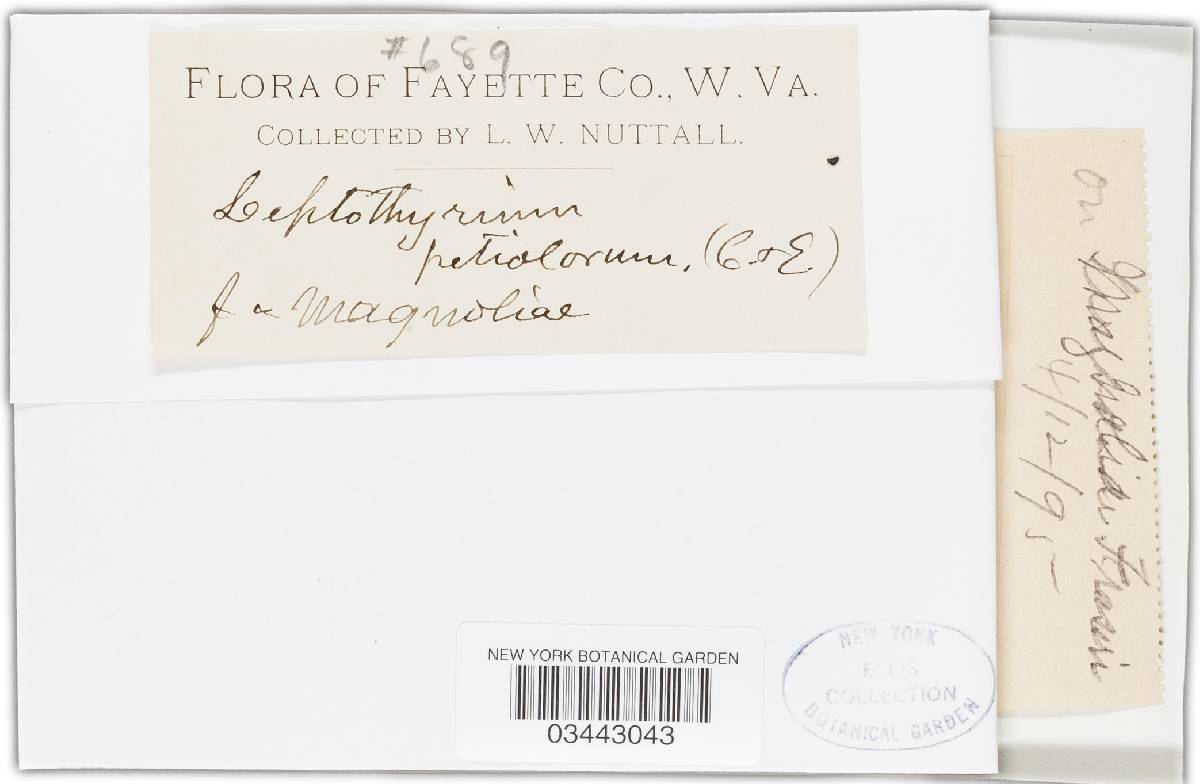 #689
FLORA OF FAYETTE CO., W. VA.
COLLECTED BY L. W. NUTTALL.
Leptothyrium
petiolorum, (C & E.)
f Magnoliae
on Magnolia Fraseri
4/12/95 –
NEW YORK BOTANICAL GARDEN
03443043
NEW YORK
ELLIS
COLLECTION
BOTANICAL GARDEN